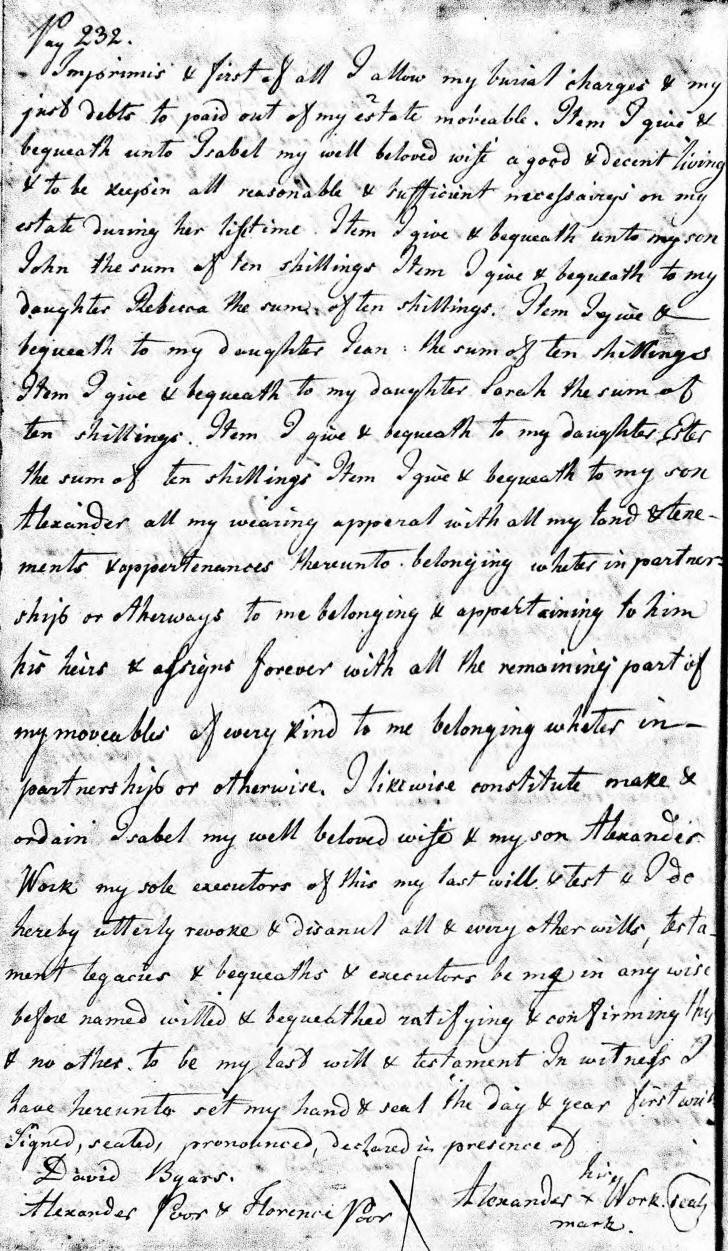 Pag 232.
Imprimis & first of all I allow my burial charges & my
just debts to paid out of my estate moveable. Item I give &
bequeath unto Isabel my well beloved wife a good & decent living
& to be keep in all reasonable & sufficient necessairys on my
estate during her lifetime. Item I give & bequeath unto my son
John the sum of ten shillings Item I give & bequeath to my
daughter Rebecca the sum of ten shillings. Item I give &
bequeath to my daughter Jean the sum of ten shillings
Item I give & bequeath to my daughter Sarah the sum of
ten shillings. Item I give & bequeath to my daughter Ester
the sum of ten shillings Item I give & bequeath to my son
Alexander all my wearing apperal with all my land & tene-
ments & appertenances thereunto belonging wheter in partner-
ship or otherways to me belonging & appertaining to him
his heirs & assigns forever with all the remaining part of
my moveables of every kind to me belonging wheter in
partnership or otherwise. I likewise constitute make &
ordain Isabel my well beloved wife & my son Alexander
Work my sole executors of this my last will & test & I do
hereby utterly revoke & disanul all & every other wills, testa-
ment legacies & bequeaths & executors be me in any wise
before named willed & bequeathed ratifying & confirming this
& no other to be my last will & testament In witness I
have hereunto set my hand & seal the day & year first writ
Signed, sealed, pronounced, declared in presence of
David Byars.
Alexander Poor & Florence Poor
his
Alexander + Work. seal
mark.